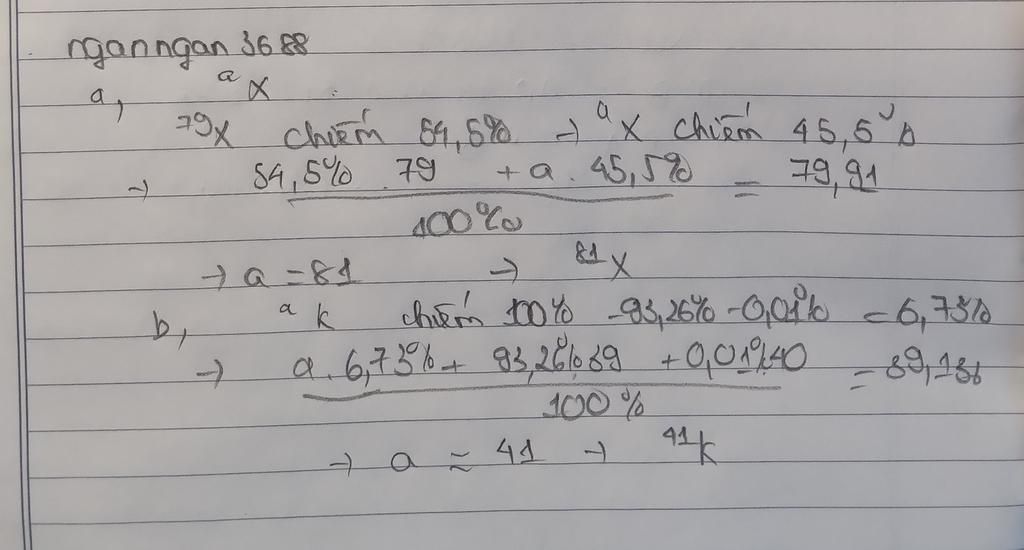 nganngan 3688
a, ᵃX
⁷⁹X chiếm 54,5% → ᵃX chiếm 45,5%
→ 54,5% . 79 + a . 45,5% = 79,91
100%
→ a = 81 → ⁸¹X
b, ᵃK chiếm 100% - 93,26% - 0,01% = 6,73%
→ a . 6,73% + 93,26% . 39 + 0,01% . 40 = 39,136
100%
→ a ≈ 41 → ⁴¹K